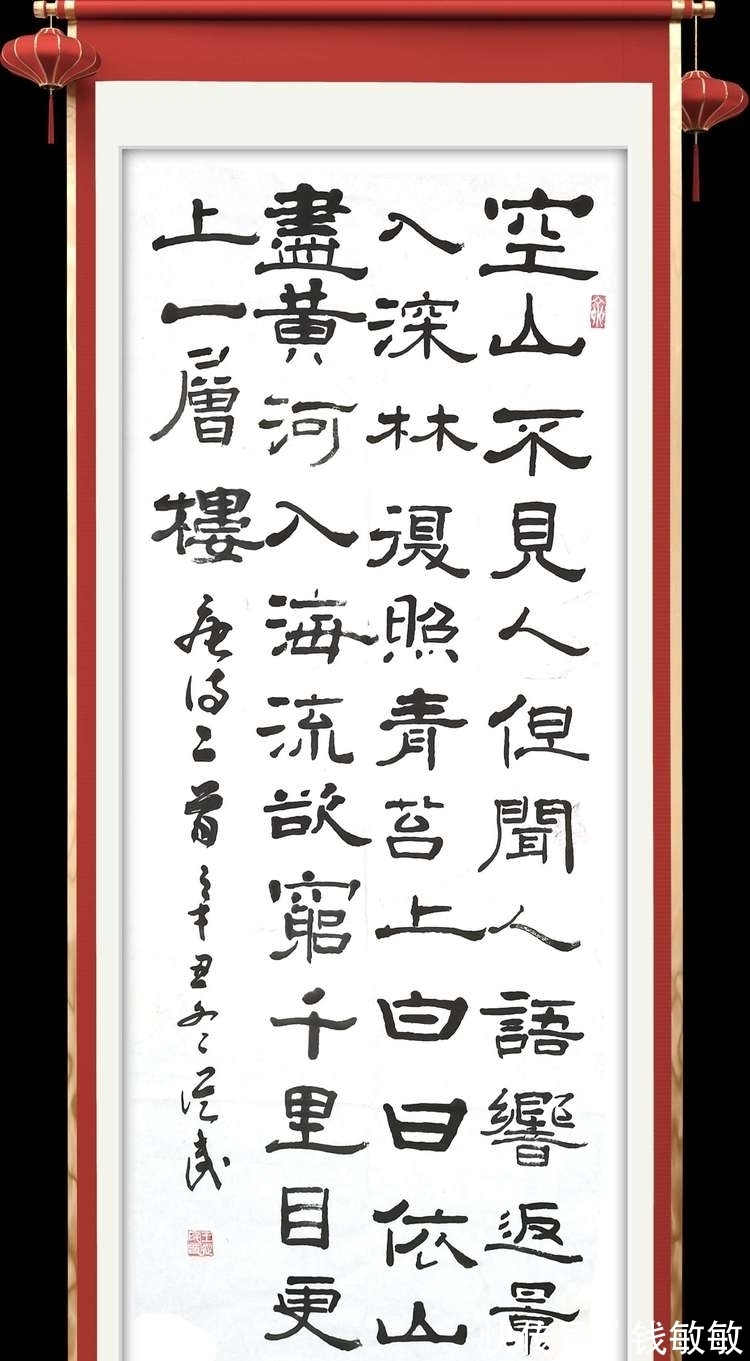 空山不見人但聞人語響返景
入深林復照青苔上白日依山
盡黄河入海流欲窮千里目更
上一層樓
唐诗二首辛丑冬
快传号/钱敏敏